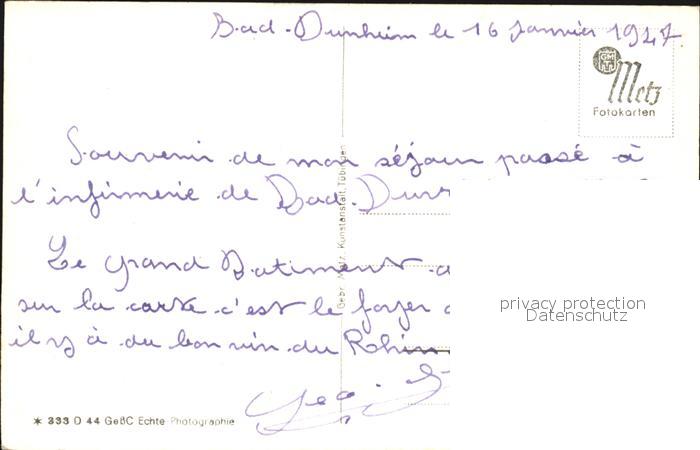 Bad-Durrheim le 16 Janvier 1947
Metz
Fotokarten
Souvenir de mon séjour passé à
l'infirmerie de Bad-Durr
Le grand Batiment
sur la carte c'est le foyer
il y à du bon vin du Rhin
Gebr. Metz, Kunstanstalt, Tübingen
privacy protection
Datenschutz
✶ 333 D 44 GeßC Echte Photographie